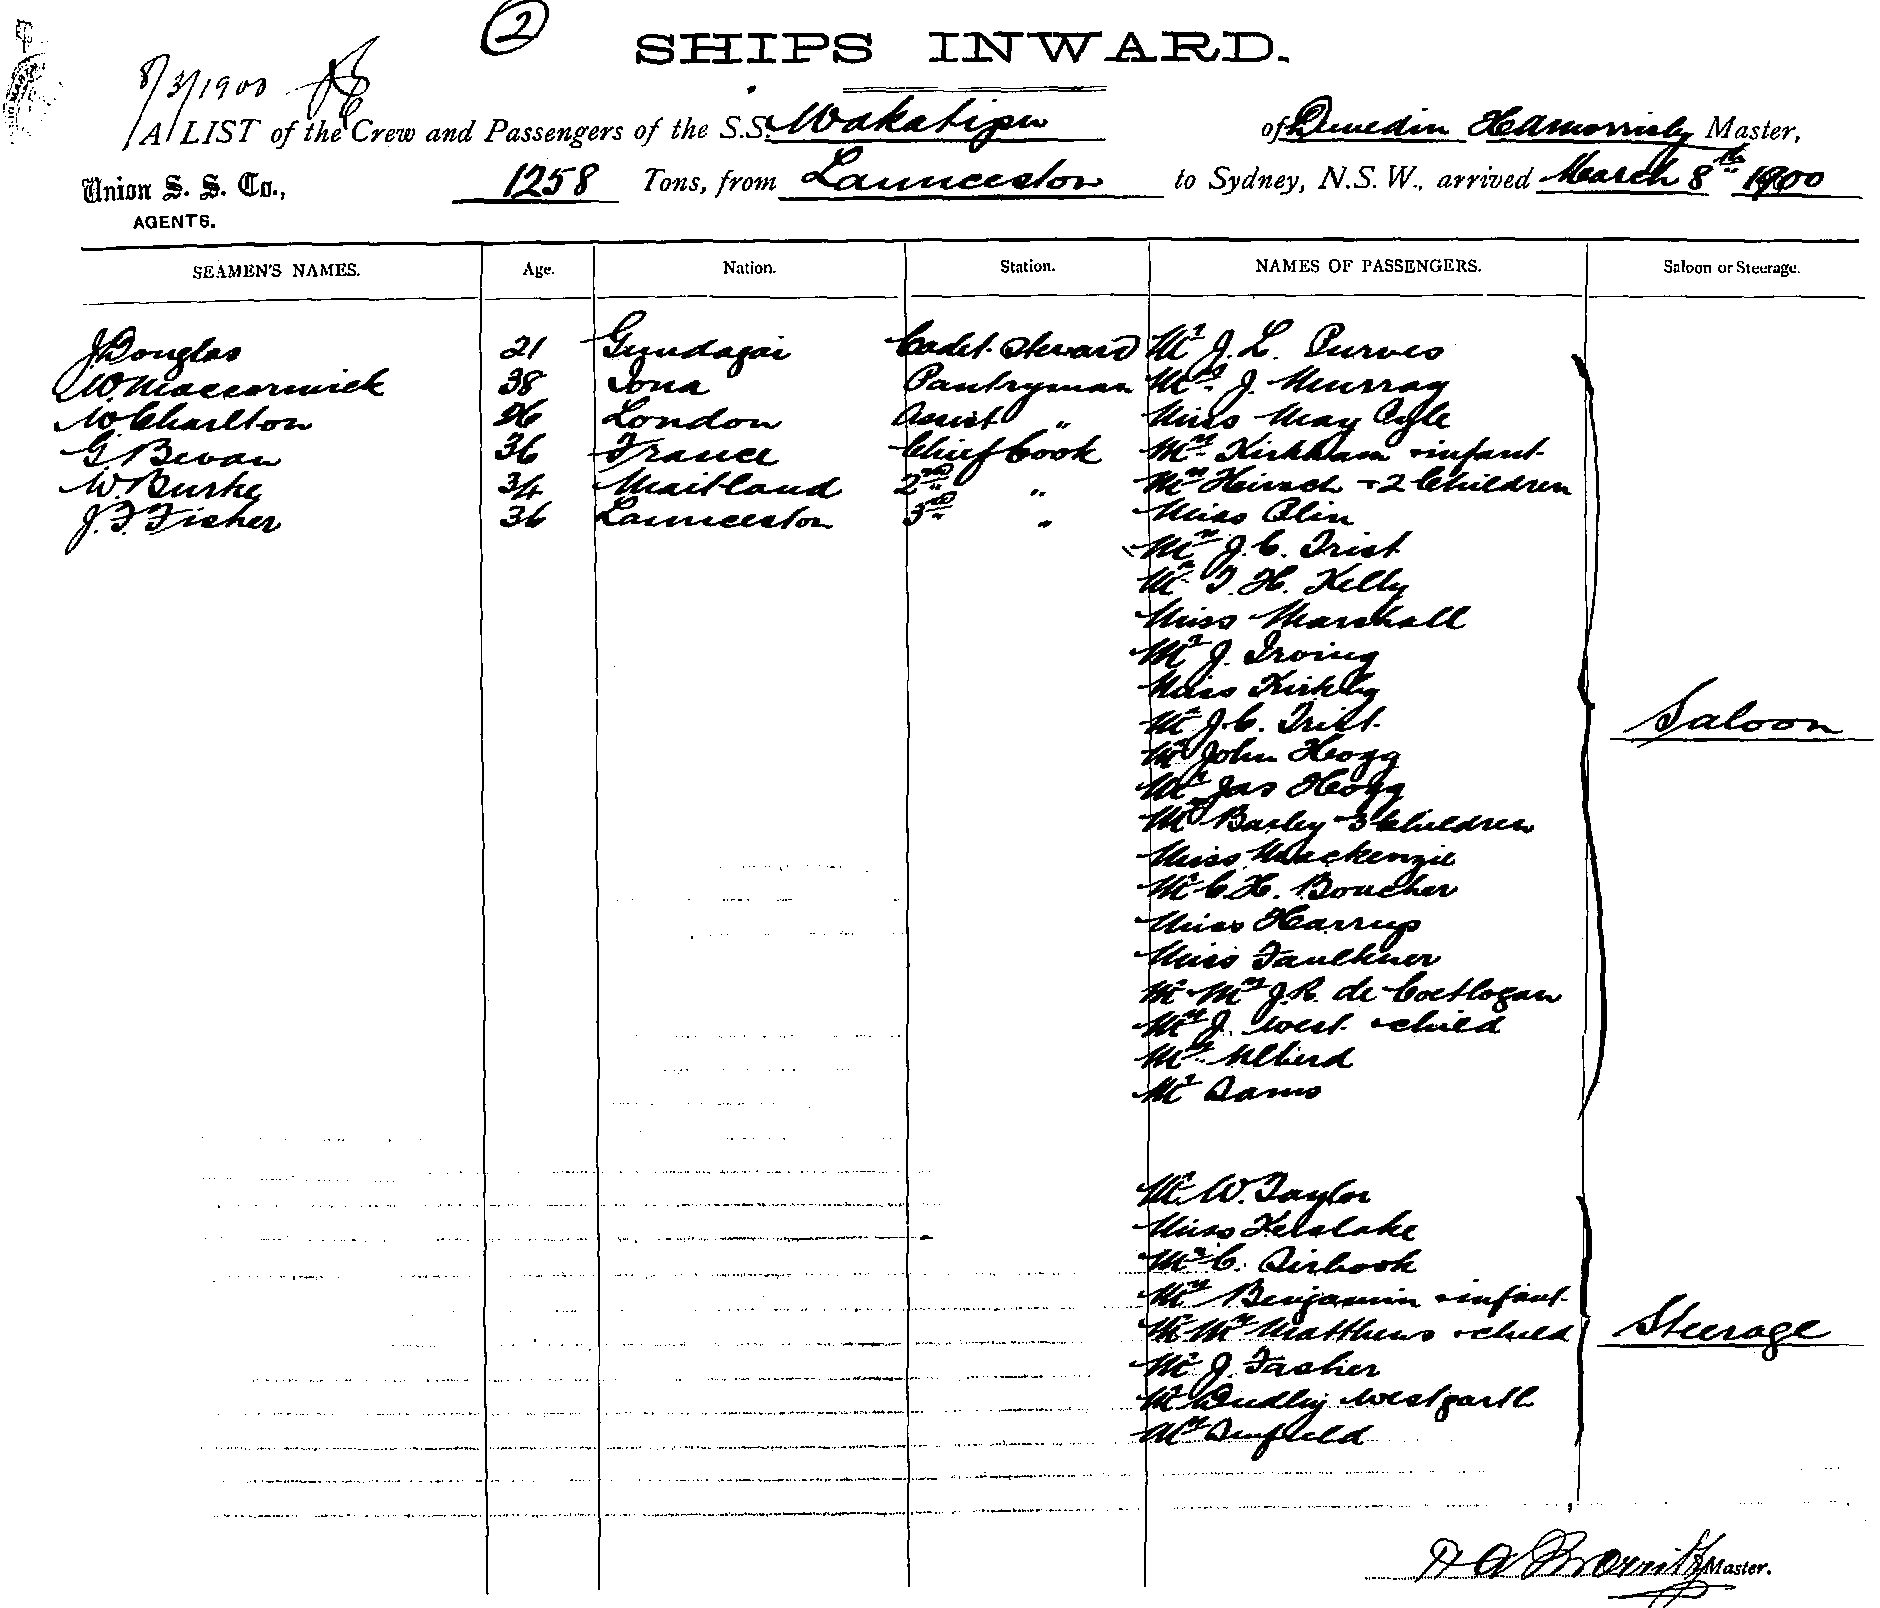 2
SHIPS INWARD.
8/3/1900
A LIST of the Crew and Passengers of the S.S. Wakatipu of Dunedin H A Morrisby Master,
Union S. S. Co., 1258 Tons, from Launceston to Sydney, N.S.W., arrived March 8th 1900
AGENTS.
SEAMEN'S NAMES. Age. Nation. Station. NAMES OF PASSENGERS. Saloon or Steerage.
J Douglas 21 Gundagai Cadet Steward Mr J. L. Purves
W. Maccormick 38 Iona Pantryman J. Murray
W Charlton 26 London Assist " Miss May Cyle
G. Bevan 36 France Chief Cook Mrs Kirkham + infant
W. Burke 34 Maitland 2nd " Mrs Heirsch + 2 Children
J. F. Fisher 36 Launceston 3rd " Miss Olin
Mrs J. C. Trist
Mr T. H. Kelly
Miss Marshall
Mr J. Irving
Miss Kirkby
Mr J. C. Trist
Saloon
Mr John Hogg
Mr Jas Hogg
Barley 3 Children
Miss Mackenzie
Mr C. H. Boucher
Miss Harrup
Miss Faulkner
Mr + Mrs J. R. de Coetlogan
Mrs J. West + child
Mrs
Mr
Mr W. Taylor
Miss Kerslake
C.
Mrs Benjamin + infant
Mr Mrs Matthews + child
Steerage
Mr J. Fasher
Mr Dudley
Mrs
H A Morrisby Master.